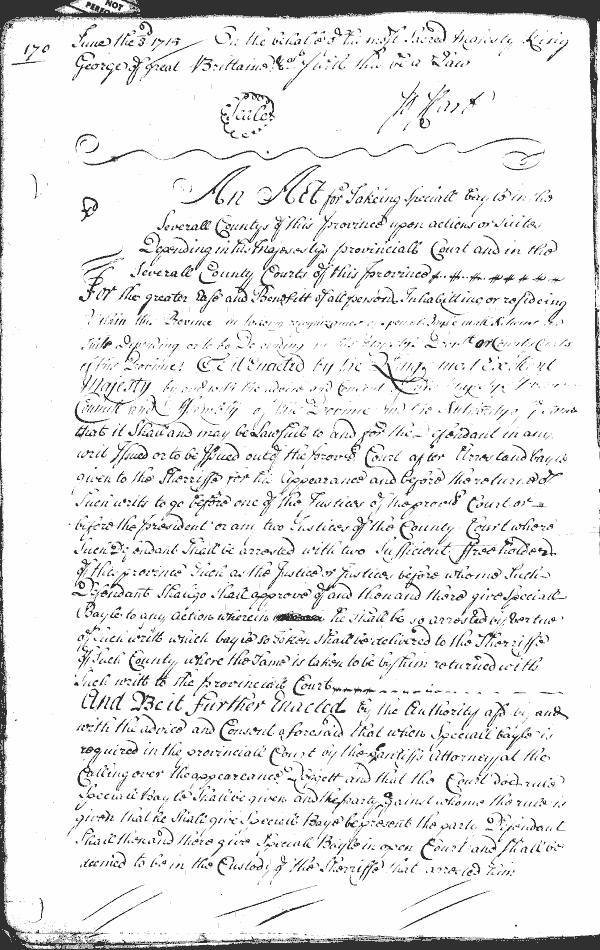 NOT
170
June the 3d 1715 On the behalfe of the most Sacred Majesty King
George of Great Brittaine &ca I will this be a Law
Seale
Jo Hart
An Act for Takeing Speciall bayle in the
Severall Countys of this Province upon actions or Suites
Depending in his Majestys provinciall Court and in the
Severall County Courts of this province
For the greater Ease and Benefitt of all persons Inhabitting or resideing
within this Province in
Suite depending or to be Depending in his Majestys Court or County Courts
of this Province Be it enacted by the Kings most Excellent
Majesty by and with the advice and Consent of
Councill and Assembly of this Province and the Authority of
that it Shall and may be Lawfull to and for the Defendant in any
writ Issued or to be Issued out of the provll Court after Arrest and bayle
given to the Sherriffe for his Appearance and before the returne of
Such writs to go before one of the Justices of the provll Court or
before the president or any two Justices of the County Court where
Such Defendant Shall be arrested with two Sufficient ffreeholders
of this province Such as the Justice or Justices before whome Such
Defendant Shall go Shall approve of and then and there give Speciall
Bayle to any action wherein he Shall be so arrested by Vertue
of Such writt which bayle so Taken Shall be delivered to the Sherriffe
of Such County where the Same is taken to be by him returned with
Such writt to the Provinciall Court
And Be it further Enacted by the Authority afd by and
with the advice and Consent aforesaid that when Speciall bayle is
required in the provinciall Court by the plantiffs Attorney at the
Calling over the appeareance Dockett and that the Court doe rule
Speciall Bayle Shall be given and the party against whome the rule is
given that he Shall give Speciall Bayle be present the party Defendant
Shall then and there give Speciall Bayle in open Court and Shall be
deemed to be in the Custody of the Sherriffe that arrested him